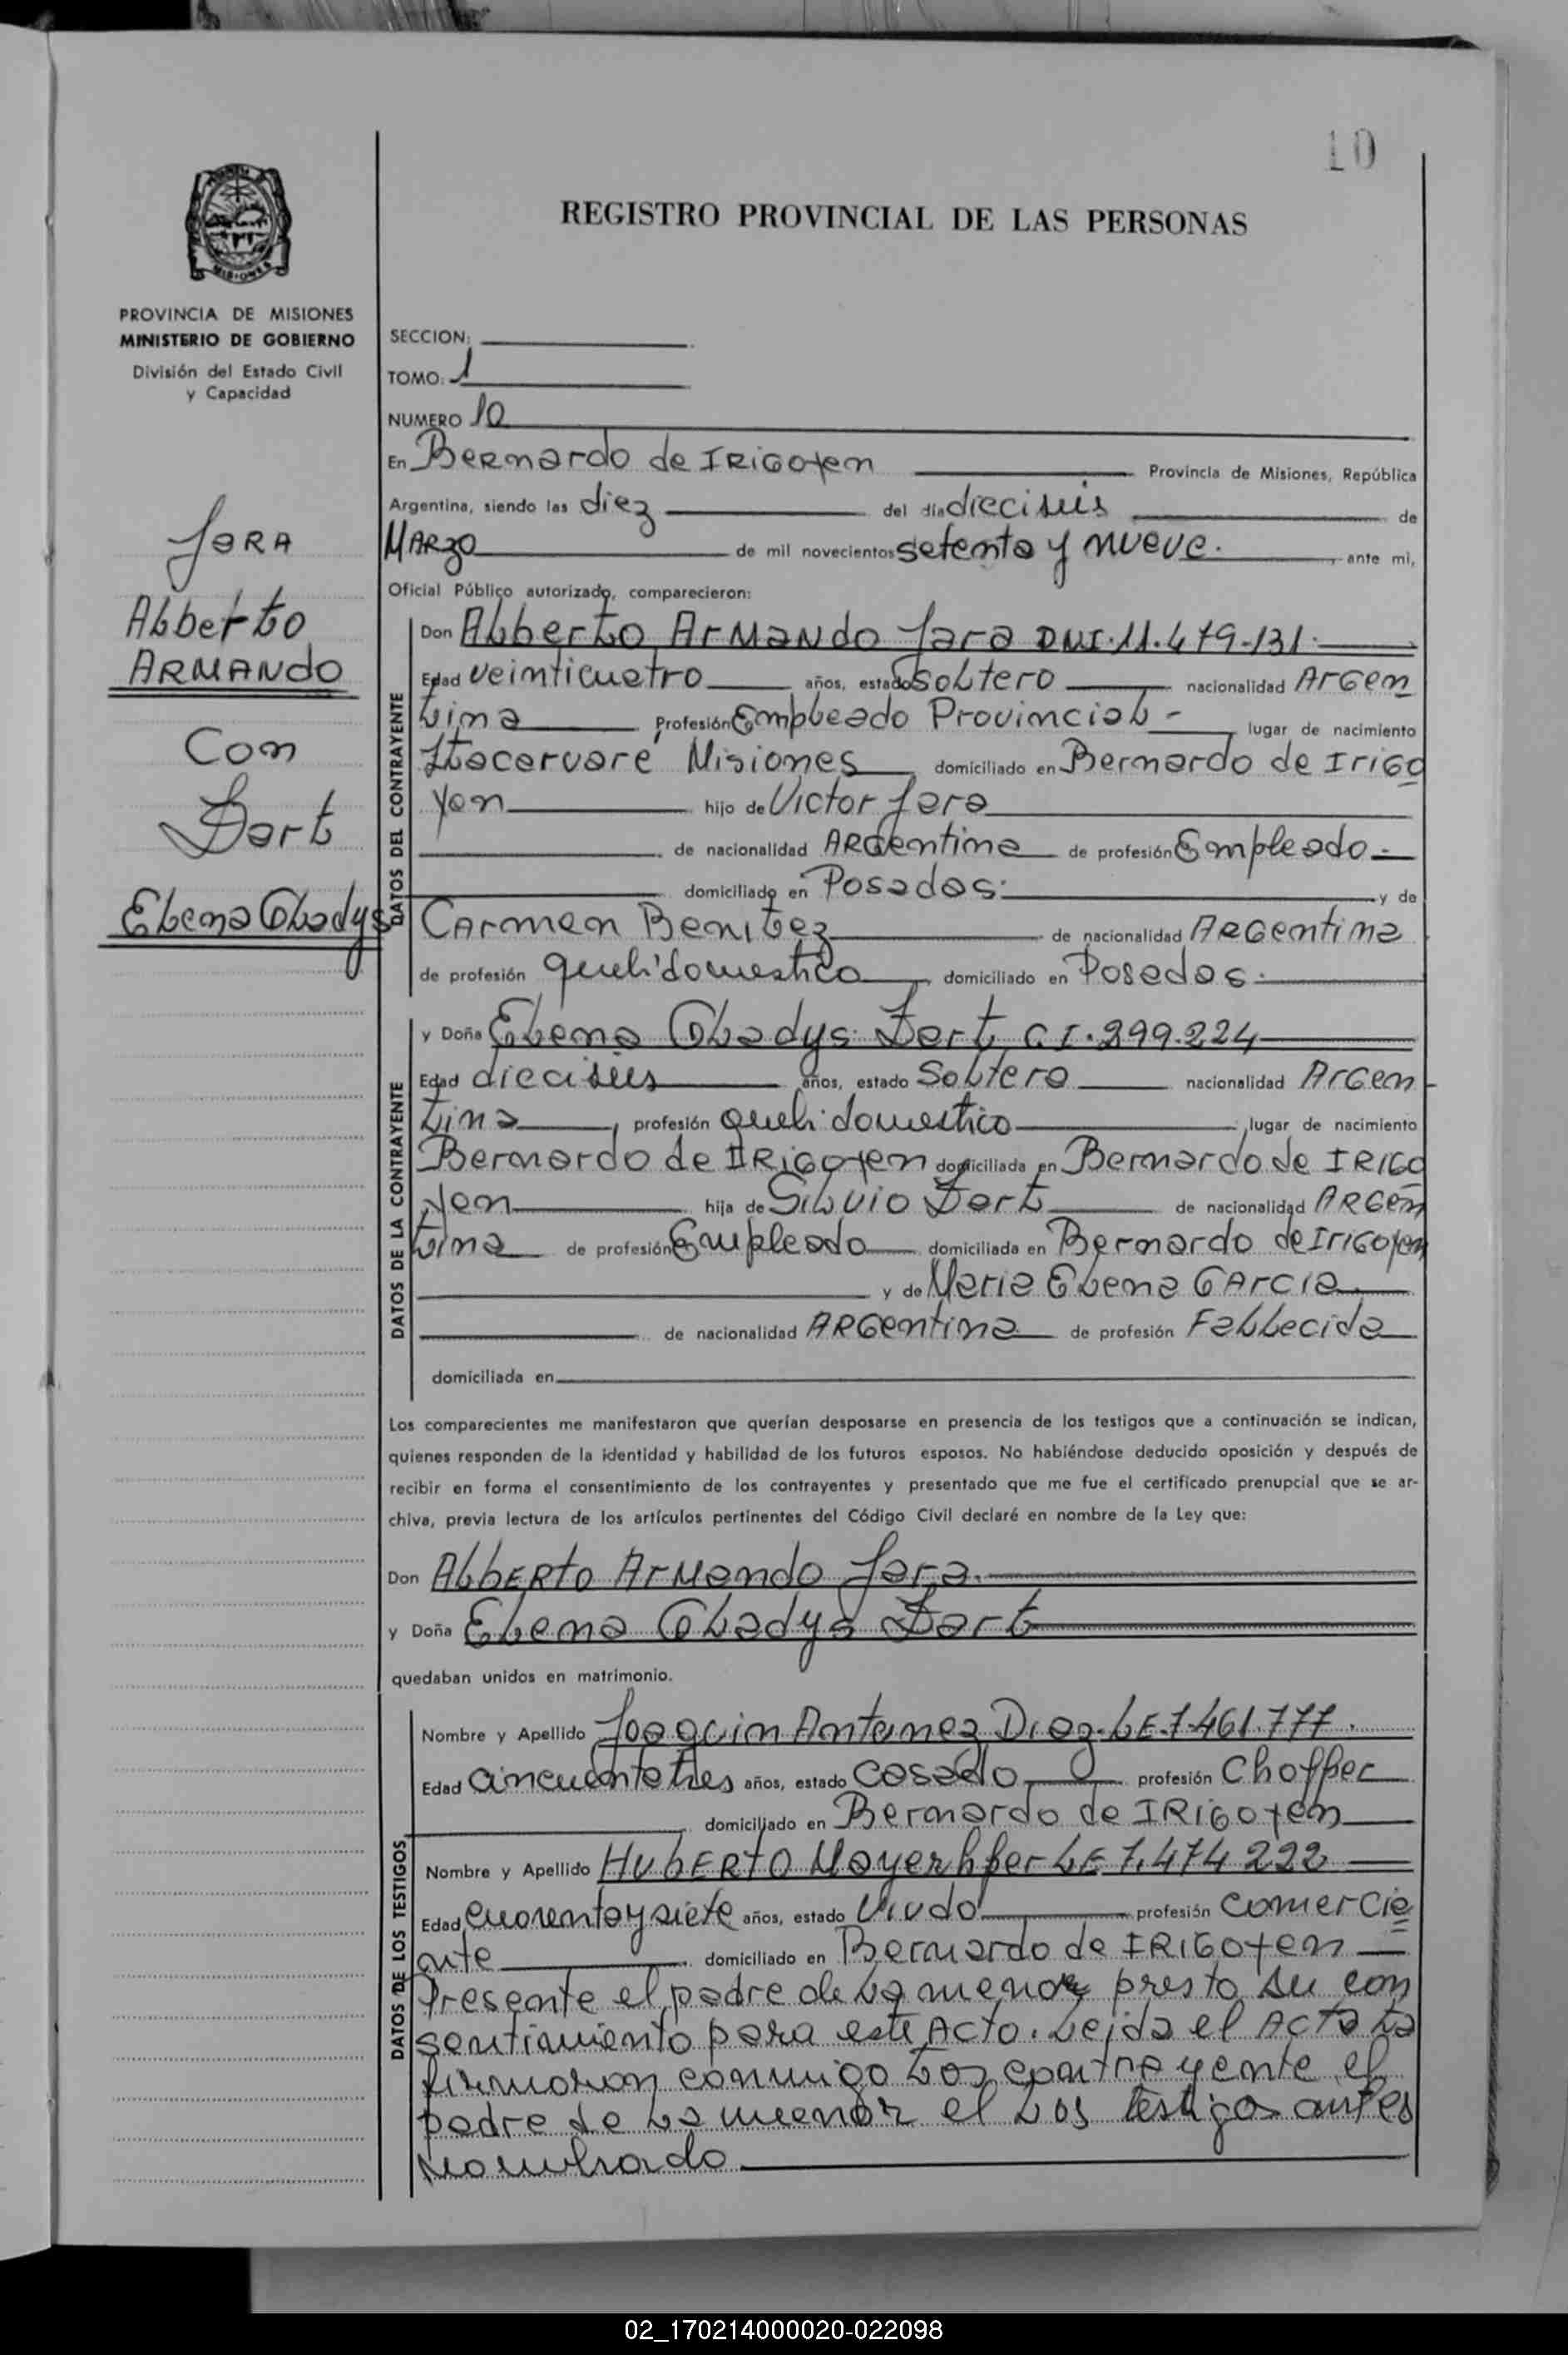 10
REGISTRO PROVINCIAL DE LAS PERSONAS
MISIONES
PROVINCIA DE MISIONES
MINISTERIO DE GOBIERNO
División del Estado Civil
y Capacidad
Jara
Alberto
Armando
Con
Dart
Elena Gladys
SECCION:
TOMO: 1
NUMERO 10
En Bernardo de Irigoyen Provincia de Misiones, República
Argentina, siendo las diez del día dieciseis de
Marzo de mil novecientos setenta y nueve. ante mi,
Oficial Público autorizado, comparecieron:
DATOS DEL CONTRAYENTE
Don Alberto Armando Jara DNI. 11.479.131.
Edad veinticuatro años, estado Soltero nacionalidad Argen
tina Profesión Empleado Provincial - lugar de nacimiento
Itacaruaré Misiones domiciliado en Bernardo de Irigo
yen hijo de Victor Jara
de nacionalidad Argentina de profesión Empleado.
domiciliado en Posadas. y de
Carmen Benitez de nacionalidad Argentina
de profesión domiciliado en Posadas.
DATOS DE LA CONTRAYENTE
y Doña Elena Gladys Dart C.I. 299.224
Edad dieciseis años, estado Soltera nacionalidad Argen
tina profesión lugar de nacimiento
Bernardo de Irigoyen domiciliada en Bernardo de Irigo
yen hija de Silvio Dart de nacionalidad Argen
tina de profesión Empleado domiciliada en Bernardo de Irigoyen
y de Maria Elena Garcia
de nacionalidad Argentina de profesión Fallecida
domiciliada en
Los comparecientes me manifestaron que querían desposarse en presencia de los testigos que a continuación se indican,
quienes responden de la identidad y habilidad de los futuros esposos. No habiéndose deducido oposición y después de
recibir en forma el consentimiento de los contrayentes y presentado que me fue el certificado prenupcial que se ar-
chiva, previa lectura de los artículos pertinentes del Código Civil declaré en nombre de la Ley que:
Don Alberto Armando Jara.
y Doña Elena Gladys Dart
quedaban unidos en matrimonio.
DATOS DE LOS TESTIGOS
Nombre y Apellido Joaquin Antunez Diaz. LE. 7.461.777.
Edad cincuentatres años, estado casado profesión Choffer
domiciliado en Bernardo de Irigoyen
Nombre y Apellido Huberto LE 7.474 222
Edad cuarentaysiete años, estado Viudo profesión comercia
ante domiciliado en Bernardo de Irigoyen
Presente el padre de la menor presto su con
sentimiento para este Acto. Leida el Acta la
firmaron conmigo los contrayente el
padre de la menor el los testigos antes
nombrado
02_170214000020-022098